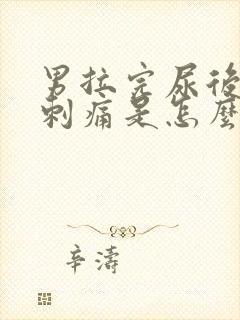 男拉完尿後
刺痛是怎麼
辛濤